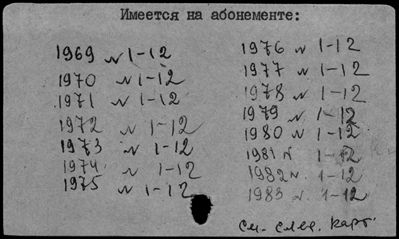 Имеется на абонементе:
1969 N 1-12
1970 N 1-12
1971 N 1-12
1972 N 1-12
1973 N 1-12
1974 N 1-12
1975 N 1-12
1976 N 1-12
1977 N 1-12
1978 N 1-12
1979 N 1-12
1980 N 1-12
1981 N 1-12
1982 N. 1-12
1983 N. 1-12
См. след. карт.